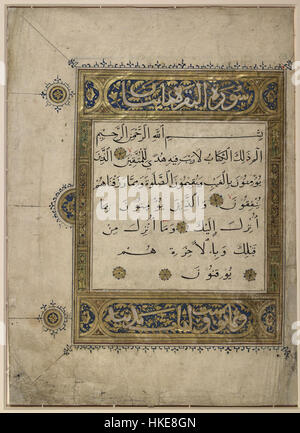 سورة البقرة مايتان
بسم الله الرحمن الرحيم
الم ذلك الكتاب لا ريب فيه هدى للمتقين الذين
يؤمنون بالغيب ويقيمون الصلوة ومما رزقناهم
ينفقون والذين يؤمنون بما
أنزل إليك وما أنزل من
قبلك وبالآخرة هم
يوقنون
alamy
Image ID: HKE8GN
www.alamy.com